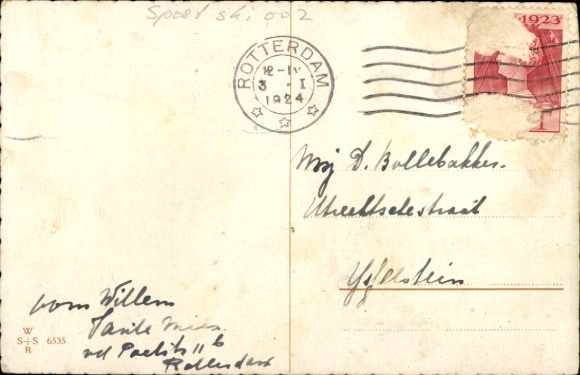 Sport ski 002
ROTTERDAM
12-IV
3 . I
1924
1923
1
Mej D. Bollebakker.
Utrechtschestraat
Yselstein
oom Willem
Tante Mies
Rotterdam
W
S+S
B
6535